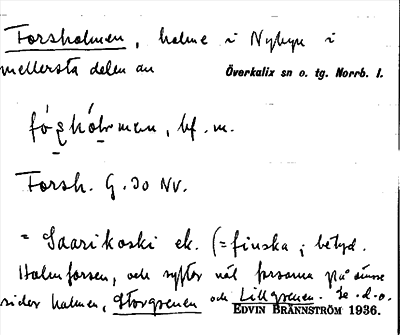 Forsholmen, holme i Nybyn i
mellersta delen av Överkalix sn o. tg. Norrb. l.
bf. m.
Forsh. G. 30 NV.
= Saarikoski ek. (= finska; betyd.
Holmforsen, och syftar väl forsarna på ömse
sidor holmen, Storgrenen och Lillgrenen. Se d.o.
EDVIN BRÄNNSTRÖM 1936.